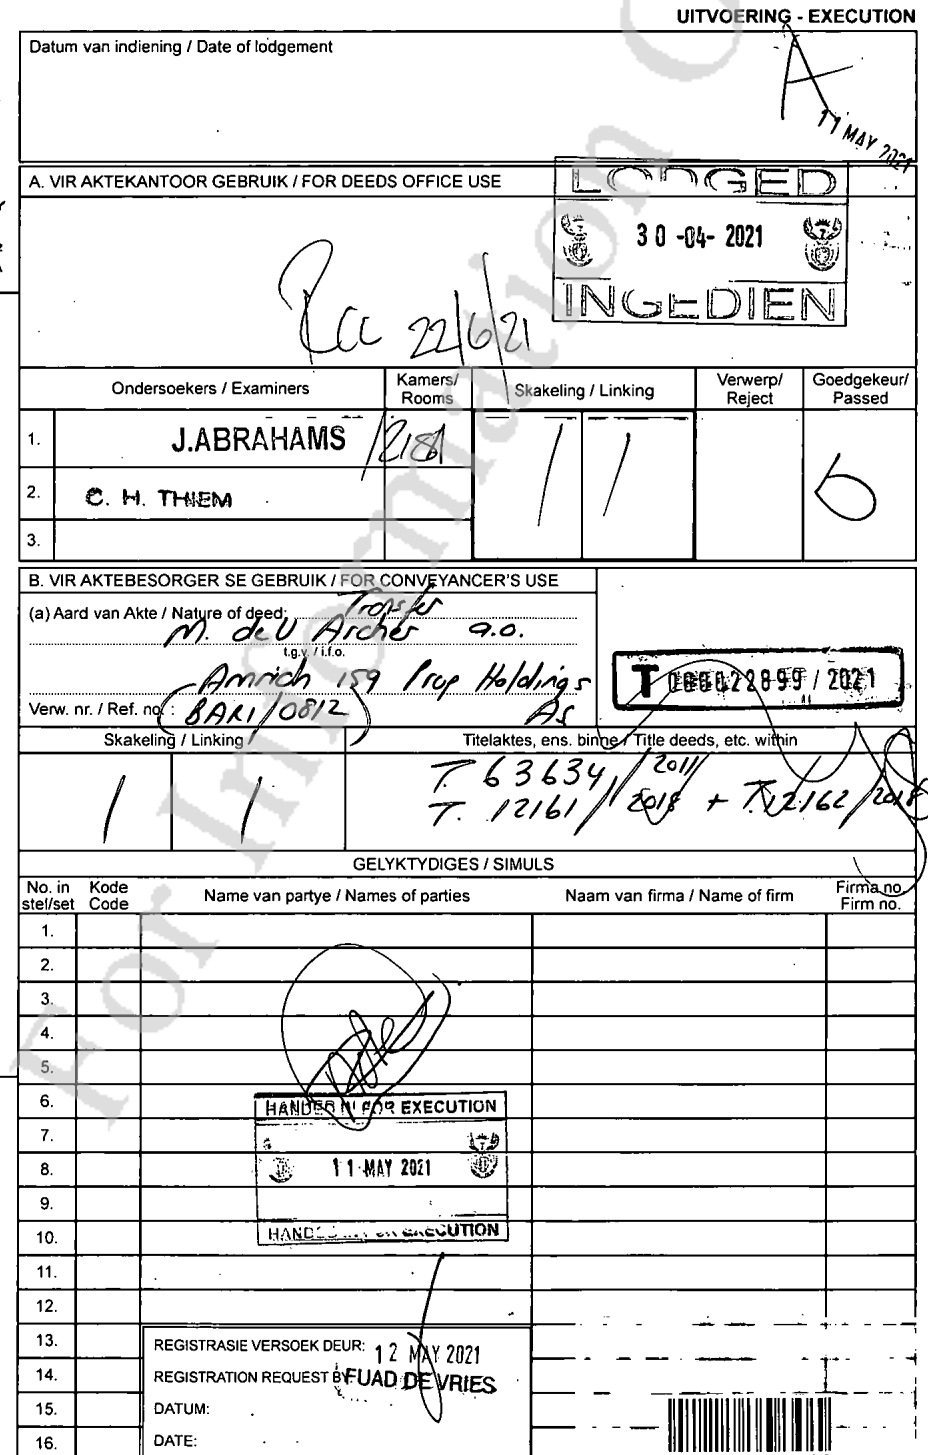 UITVOERING - EXECUTION
Datum van indiening / Date of lodgement
A
11 MAY 2021
A. VIR AKTEKANTOOR GEBRUIK / FOR DEEDS OFFICE USE
LODGED
30-04-2021
INGEDIEN
22/6/21
Ondersoekers / Examiners
Kamers/
Rooms
Skakeling / Linking
Verwerp/
Reject
Goedgekeur/
Passed
1. J.ABRAHAMS
2. C. H. THIEM
3.
B. VIR AKTEBESORGER SE GEBRUIK / FOR CONVEYANCER'S USE
(a) Aard van Akte / Nature of deed: Transfer
M. deV Archer a.o.
t.g.v. / i.f.o.
Amrich 159 Prop Holdings
Verw. nr. / Ref. no. : BAR1/0812
T 000022899 / 2021
Skakeling / Linking
Titelaktes, ens. binne / Title deeds, etc. within
1 1
T. 63634/2011
T. 12161/2018 + T.12162/2018
GELYKTYDIGES / SIMULS
No. in
stel/set
Kode
Code
Name van partye / Names of parties
Naam van firma / Name of firm
Firma no.
Firm no.
1.
2.
3.
4.
5.
6.
HANDED IN FOR EXECUTION
7.
8.
11 MAY 2021
9.
10.
HANDED IN FOR EXECUTION
11.
12.
13.
REGISTRASIE VERSOEK DEUR:
12 MAY 2021
14.
REGISTRATION REQUEST BY: FUAD DE VRIES
15.
DATUM:
16.
DATE:
For Information